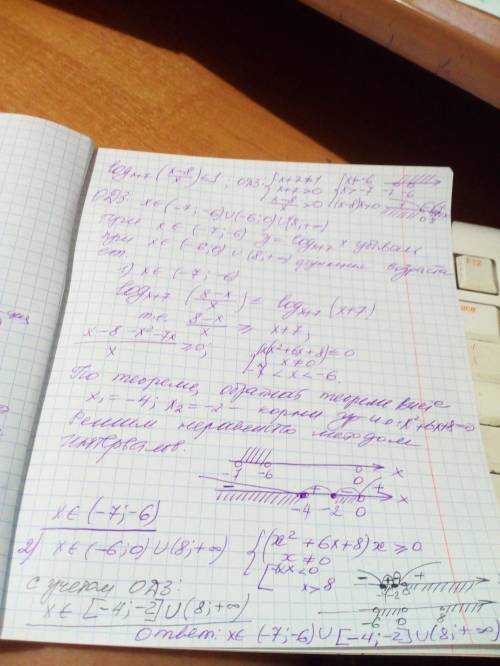 log x+7 (x-8/x) ≤ 1; ОДЗ: { x+7≠1 x+7>0 x-8/x >0 { x≠-6 x>-7 (x-8)x>0
ОДЗ: x∈(-7; -6)∪(-6; 0)∪(8; +∞)
при x∈(-7; -6) y = log x+7 x убывает
при x∈(-6; 0)∪(8; +∞) функция возрастает
1) x∈(-7; -6)
log x+7 (8-x/x) ≤ log x+7 (x+7)
т.е. 8-x/x ≥ x+7;
x-8-x²-7x/x ≥0; { x(x²+6x+8)≤0 x≠0 -7<x<-6.
По теореме, обратной теореме Виета
x₁=-4; x₂=-2 - корни ур-ия: x²+6x+8=0
Решим неравенство методом
интервалов.
-7 -6 0 x
- + - + -4 -2 0 x
x∈(-7;-6)
2) x∈(-6;0)∪(8;+∞) { (x²+6x+8)x≥0 x≠0 [ -6<x<0 x>8
с учетом ОДЗ:
x∈[-4;-2]∪(8;+∞)
-6 0 8
Ответ: x∈(-7;-6)∪[-4;-2]∪(8;+∞)